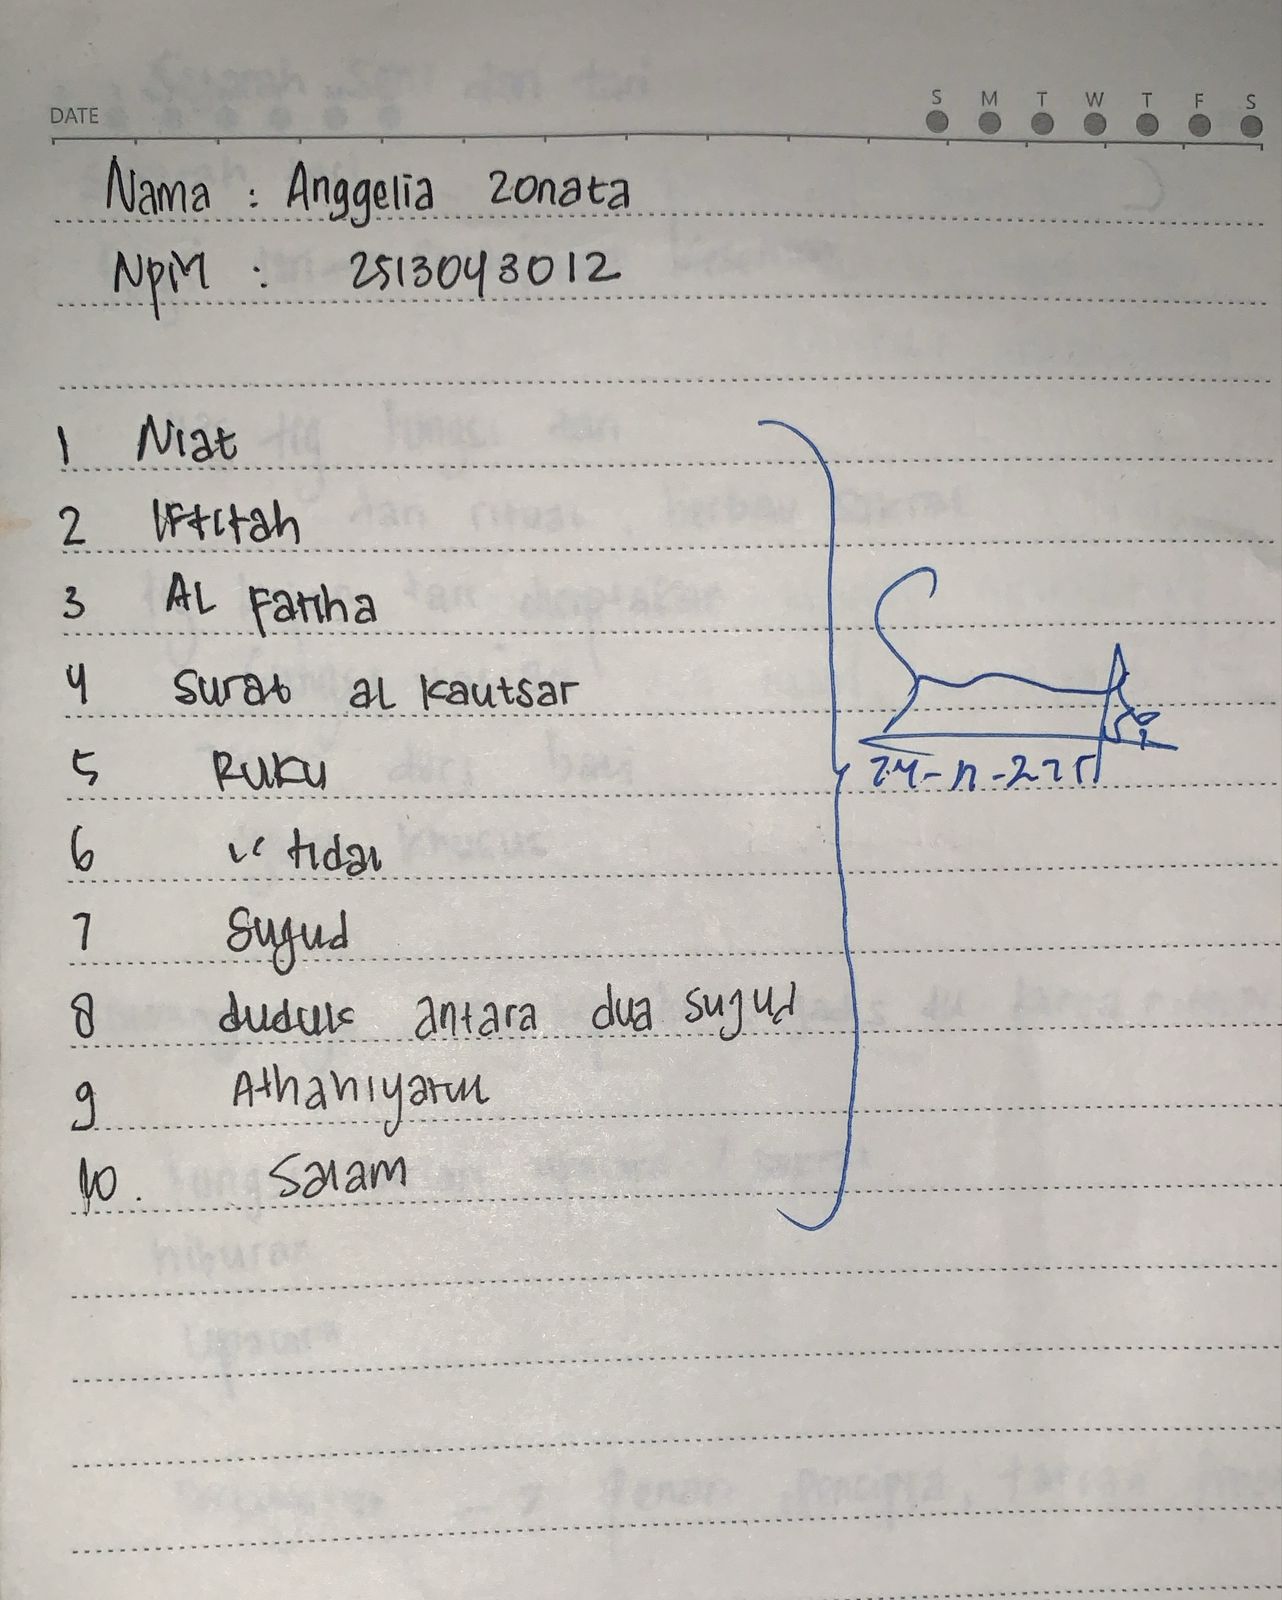 DATE
S M T W T F S
Nama : Anggelia Zonata
NPM : 2513043012
1 Niat
2 Iftitah
3 AL Fatiha
4 Surat al Kautsar
5 Ruku
6 i'tidal
7 Sujud
8 duduk antara dua sujud
9 Athahiyatul
10. Salam